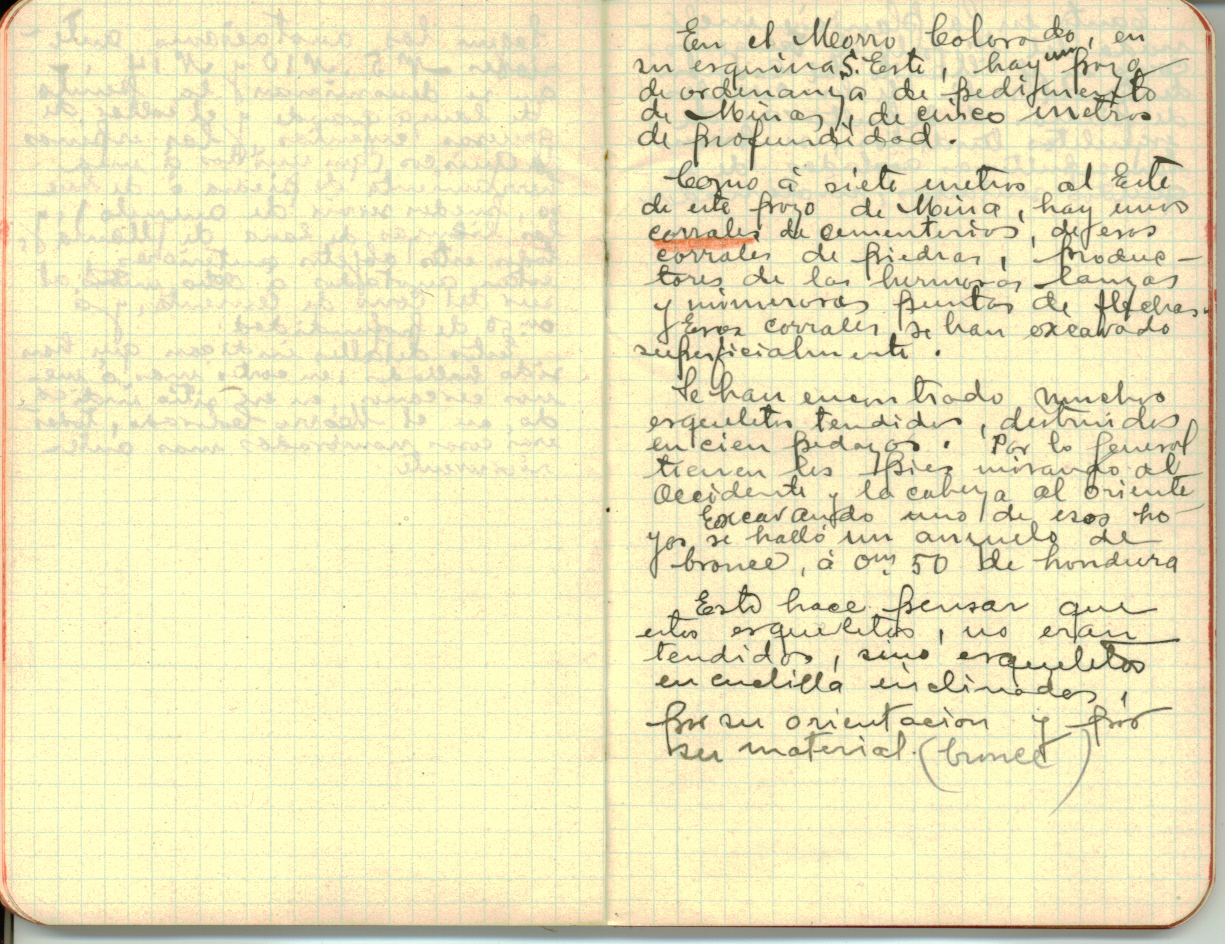 En el Morro Colorado, en
su esquina S. Este, hay un pozo
de ordenanza de pedimento
de Minas, de cinco metros
de profundidad.
Como á siete metros al Este
de este pozo de Mina, hay unos
corrales de cementerios, de esos
corrales de piedras, produc-
tores de las hermosas lanzas
y numerosas puntas de flechas.
Esos corrales se han excavado
superficialmente.
Se han encontrado muchos
esqueletos tendidos, destruidos
en cien pedazos. Por lo general
tienen los pies mirando al
Occidente y la cabeza al oriente
Excavando uno de esos ho
yos se halló un anzuelo de
bronce, á 0m,50 de hondura
Esto hace pensar que
estos esqueletos, no eran
tendidos, sino esqueletos
en cuclilla inclinados,
por su orientacion y por
su material. (bronce)